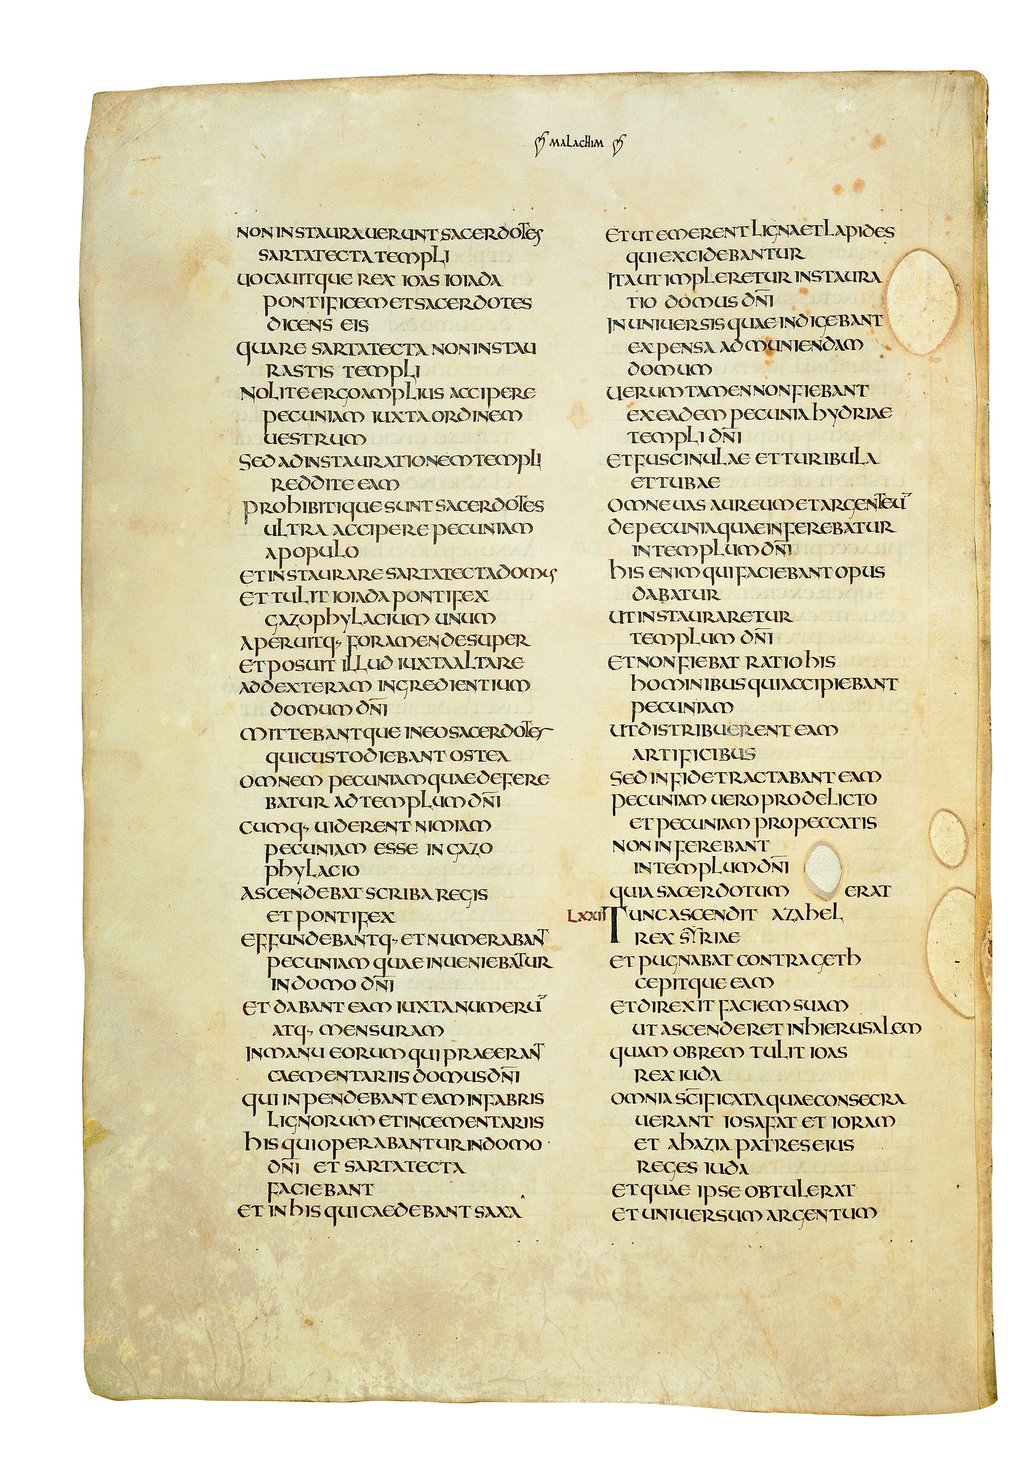 MALACHIM
NON INSTAURAUERUNT SACERDOTES
SARTATECTA TEMPLI
UOCAUITQUE REX IOAS IOIADA
PONTIFICEM ET SACERDOTES
DICENS EIS
QUARE SARTATECTA NON INSTAU
RASTIS TEMPLI
NOLITE ERGO AMPLIUS ACCIPERE
PECUNIAM IUXTA ORDINEM
UESTRUM
SED AD INSTAURATIONEM TEMPLI
REDDITE EAM
PROHIBITIQUE SUNT SACERDOTES
ULTRA ACCIPERE PECUNIAM
A POPULO
ET INSTAURARE SARTATECTA DOMUS
ET TULIT IOIADA PONTIFEX
GAZOPHYLACIUM UNUM
APERUITQ· FORAMEN DESUPER
ET POSUIT ILLUD IUXTA ALTARE
AD DEXTERAM INGREDIENTIUM
DOMUM DN̅I
MITTEBANTQUE IN EO SACERDOTES
QUI CUSTODIEBANT OSTEA
OMNEM PECUNIAM QUAE DEFERE
BATUR AD TEMPLUM DN̅I
CUMQ· UIDERENT NIMIAM
PECUNIAM ESSE IN GAZO
PHYLACIO
ASCENDEBAT SCRIBA REGIS
ET PONTIFEX
EFFUNDEBANTQ· ET NUMERABANT
PECUNIAM QUAE INUENIEBATUR
IN DOMO DN̅I
ET DABANT EAM IUXTA NUMERU̅
ATQ· MENSURAM
IN MANU EORUM QUI PRAEERANT
CAEMENTARIIS DOMUS DN̅I
QUI INPENDEBANT EAM IN FABRIS
LIGNORUM ET IN CEMENTARIIS
HIS QUI OPERABANTUR IN DOMO
DN̅I ET SARTATECTA
FACIEBANT
ET IN HIS QUI CAEDEBANT SAXA
ET UT EMERENT LIGNA ET LAPIDES
QUI EXCIDEBANTUR
ITA UT IMPLERETUR INSTAURA
TIO DOMUS DN̅I
IN UNIUERSIS QUAE INDIGEBANT
EXPENSA AD MUNIENDAM
DOMUM
UERUMTAMEN NON FIEBANT
EX EADEM PECUNIA HYDRIAE
TEMPLI DN̅I
ET FUSCINULAE ET TURIBULA
ET TUBAE
OMNE UAS AUREUM ET ARGENTEU̅
DE PECUNIA QUAE INFEREBATUR
IN TEMPLUM DN̅I
HIS ENIM QUI FACIEBANT OPUS
DABATUR
UT INSTAURARETUR
TEMPLUM DN̅I
ET NON FIEBAT RATIO HIS
HOMINIBUS QUI ACCIPIEBANT
PECUNIAM
UT DISTRIBUERENT EAM
ARTIFICIBUS
SED IN FIDE TRACTABANT EAM
PECUNIAM UERO PRO DELICTO
ET PECUNIAM PRO PECCATIS
NON INFEREBANT
IN TEMPLUM DN̅I
QUIA SACERDOTUM ERAT
LXXII TUNC ASCENDIT AZAHEL
REX SYRIAE
ET PUGNABAT CONTRA GETH
CEPITQUE EAM
ET DIREXIT FACIEM SUAM
UT ASCENDERET IN HIERUSALEM
QUAM OBREM TULIT IOAS
REX IUDA
OMNIA SC̅IFICATA QUAE CONSECRA
UERANT IOSAFAT ET IORAM
ET AHAZIA PATRES EIUS
REGES IUDA
ET QUAE IPSE OBTULERAT
ET UNIUERSUM ARGENTUM